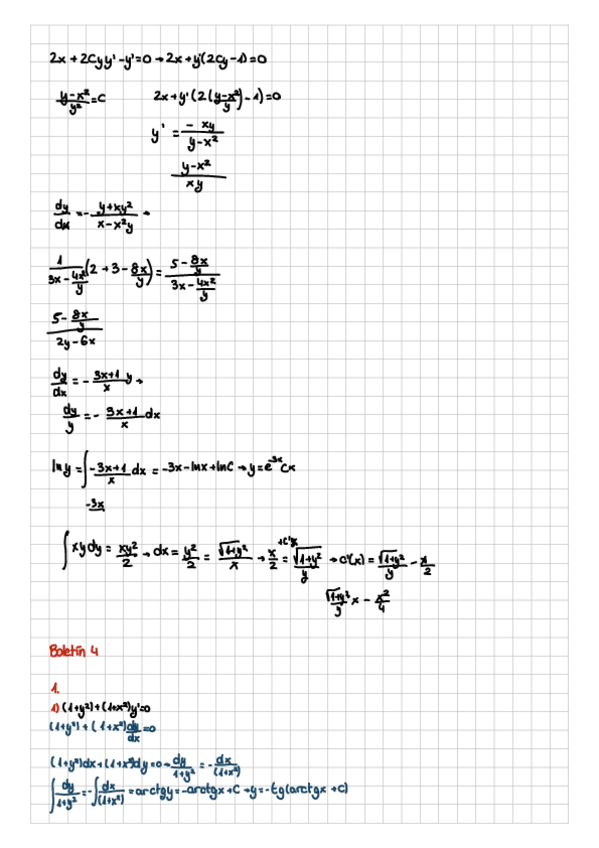 2x + 2Cyy' - y' = 0 → 2x + y'(2Cy - 1) = 0
(y-x²)/y² = C    2x + y'(2((y-x²)/y) - 1) = 0
y' = (-xy)/(y-x²)
(y-x²)/(xy)
dy/dx = - (y+xy²)/(x-x²y) →
1/(3x - 4x²/y) (2 + 3 - 8x/y) = (5 - 8x/y)/(3x - 4x²/y)
(5 - 8x/y)/(2y - 6x)
dy/dx = - (3x+1)/x y →
dy/y = - (3x+1)/x dx
ln y = ∫ -(3x+1)/x dx = -3x - lnx + lnC → y = e^(-3x) Cx
-3x
∫ xy dy = xy²/2 → dx = y²/2 = √(1+y²)/x → x/2 + C'(x) = √(1+y²)/y → C'(x) = √(1+y²)/y - x/2
√(1+y²)/y x - x²/4
Boletín 4
1.
1) (1+y²) + (1+x²)y' = 0
(1+y²) + (1+x²) dy/dx = 0
(1+y²)dx + (1+x²)dy = 0 → dy/(1+y²) = - dx/(1+x²)
∫ dy/(1+y²) = -∫ dx/(1+x²) = arctgy = -arctgx + C → y = -tg(arctgx + C)